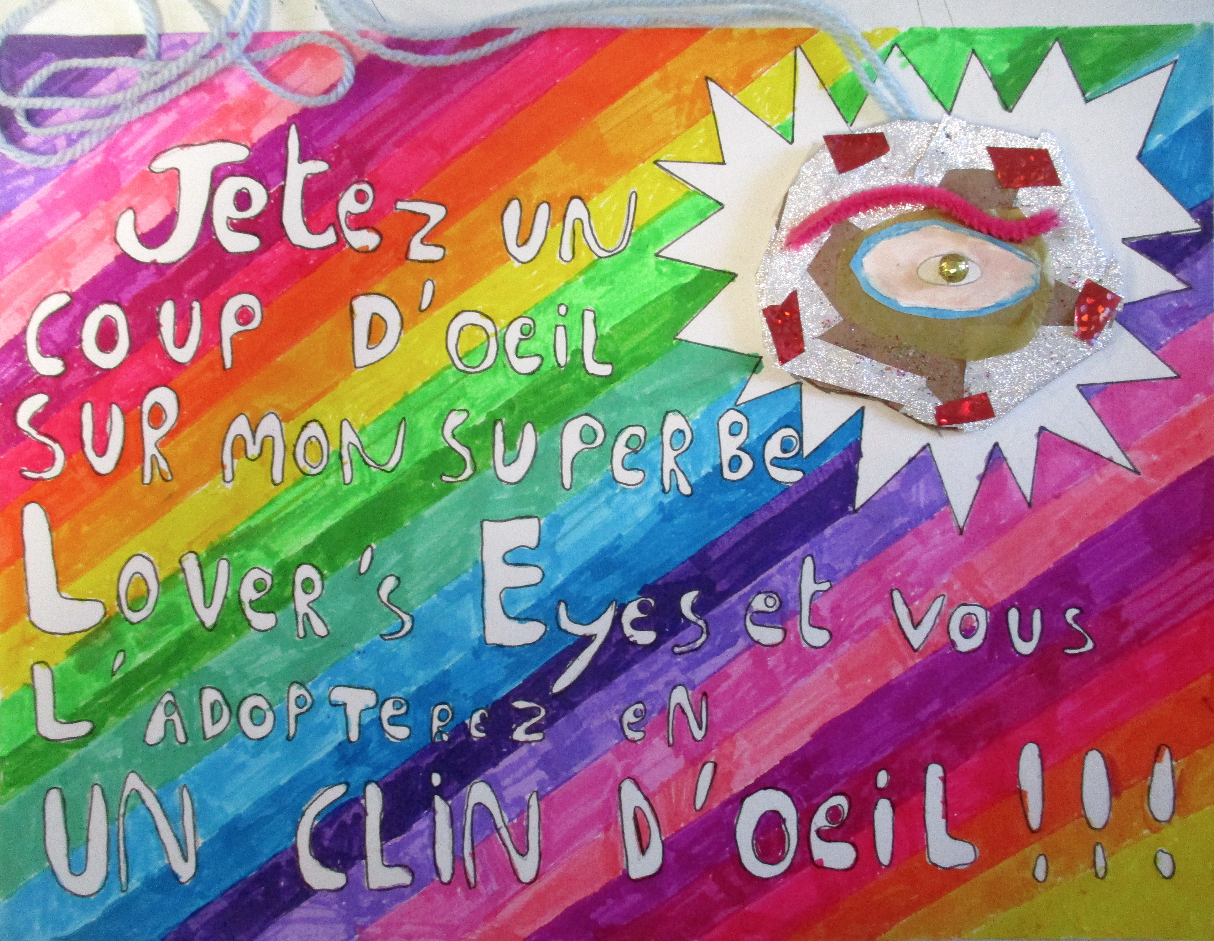 Jetez un
coup d'oeil
sur mon superbe
Lover's Eyes et vous
l'adopterez en
un clin d'oeil !!!